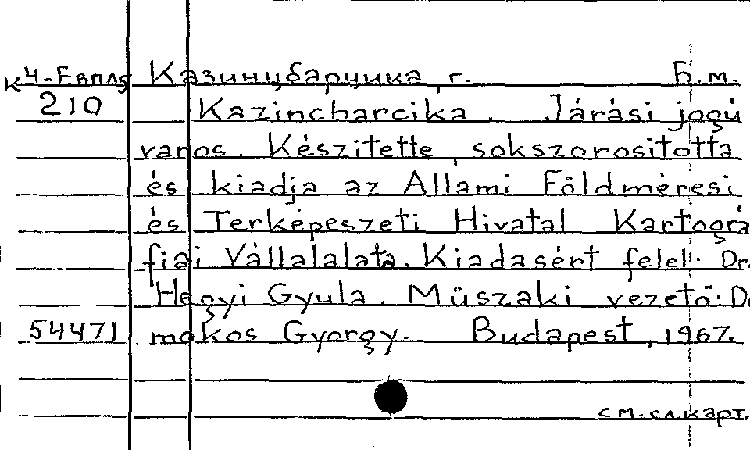 К 4-Европа Казинцбарцика, г. Б.м.
210 Kazincbarcika. Járási jogú
varos. Készitette, sokszorositotta
és kiadja az Allami Földmèresi
és Terképeszeti Hivatal Kartográ
fiai Vállalalata. Kiadasért felel: Dr.
Hegyi Gyula. Müszaki vezetö: D
54471 mokos Gyorgy. Budapest, 1967.
см. сл. карт.